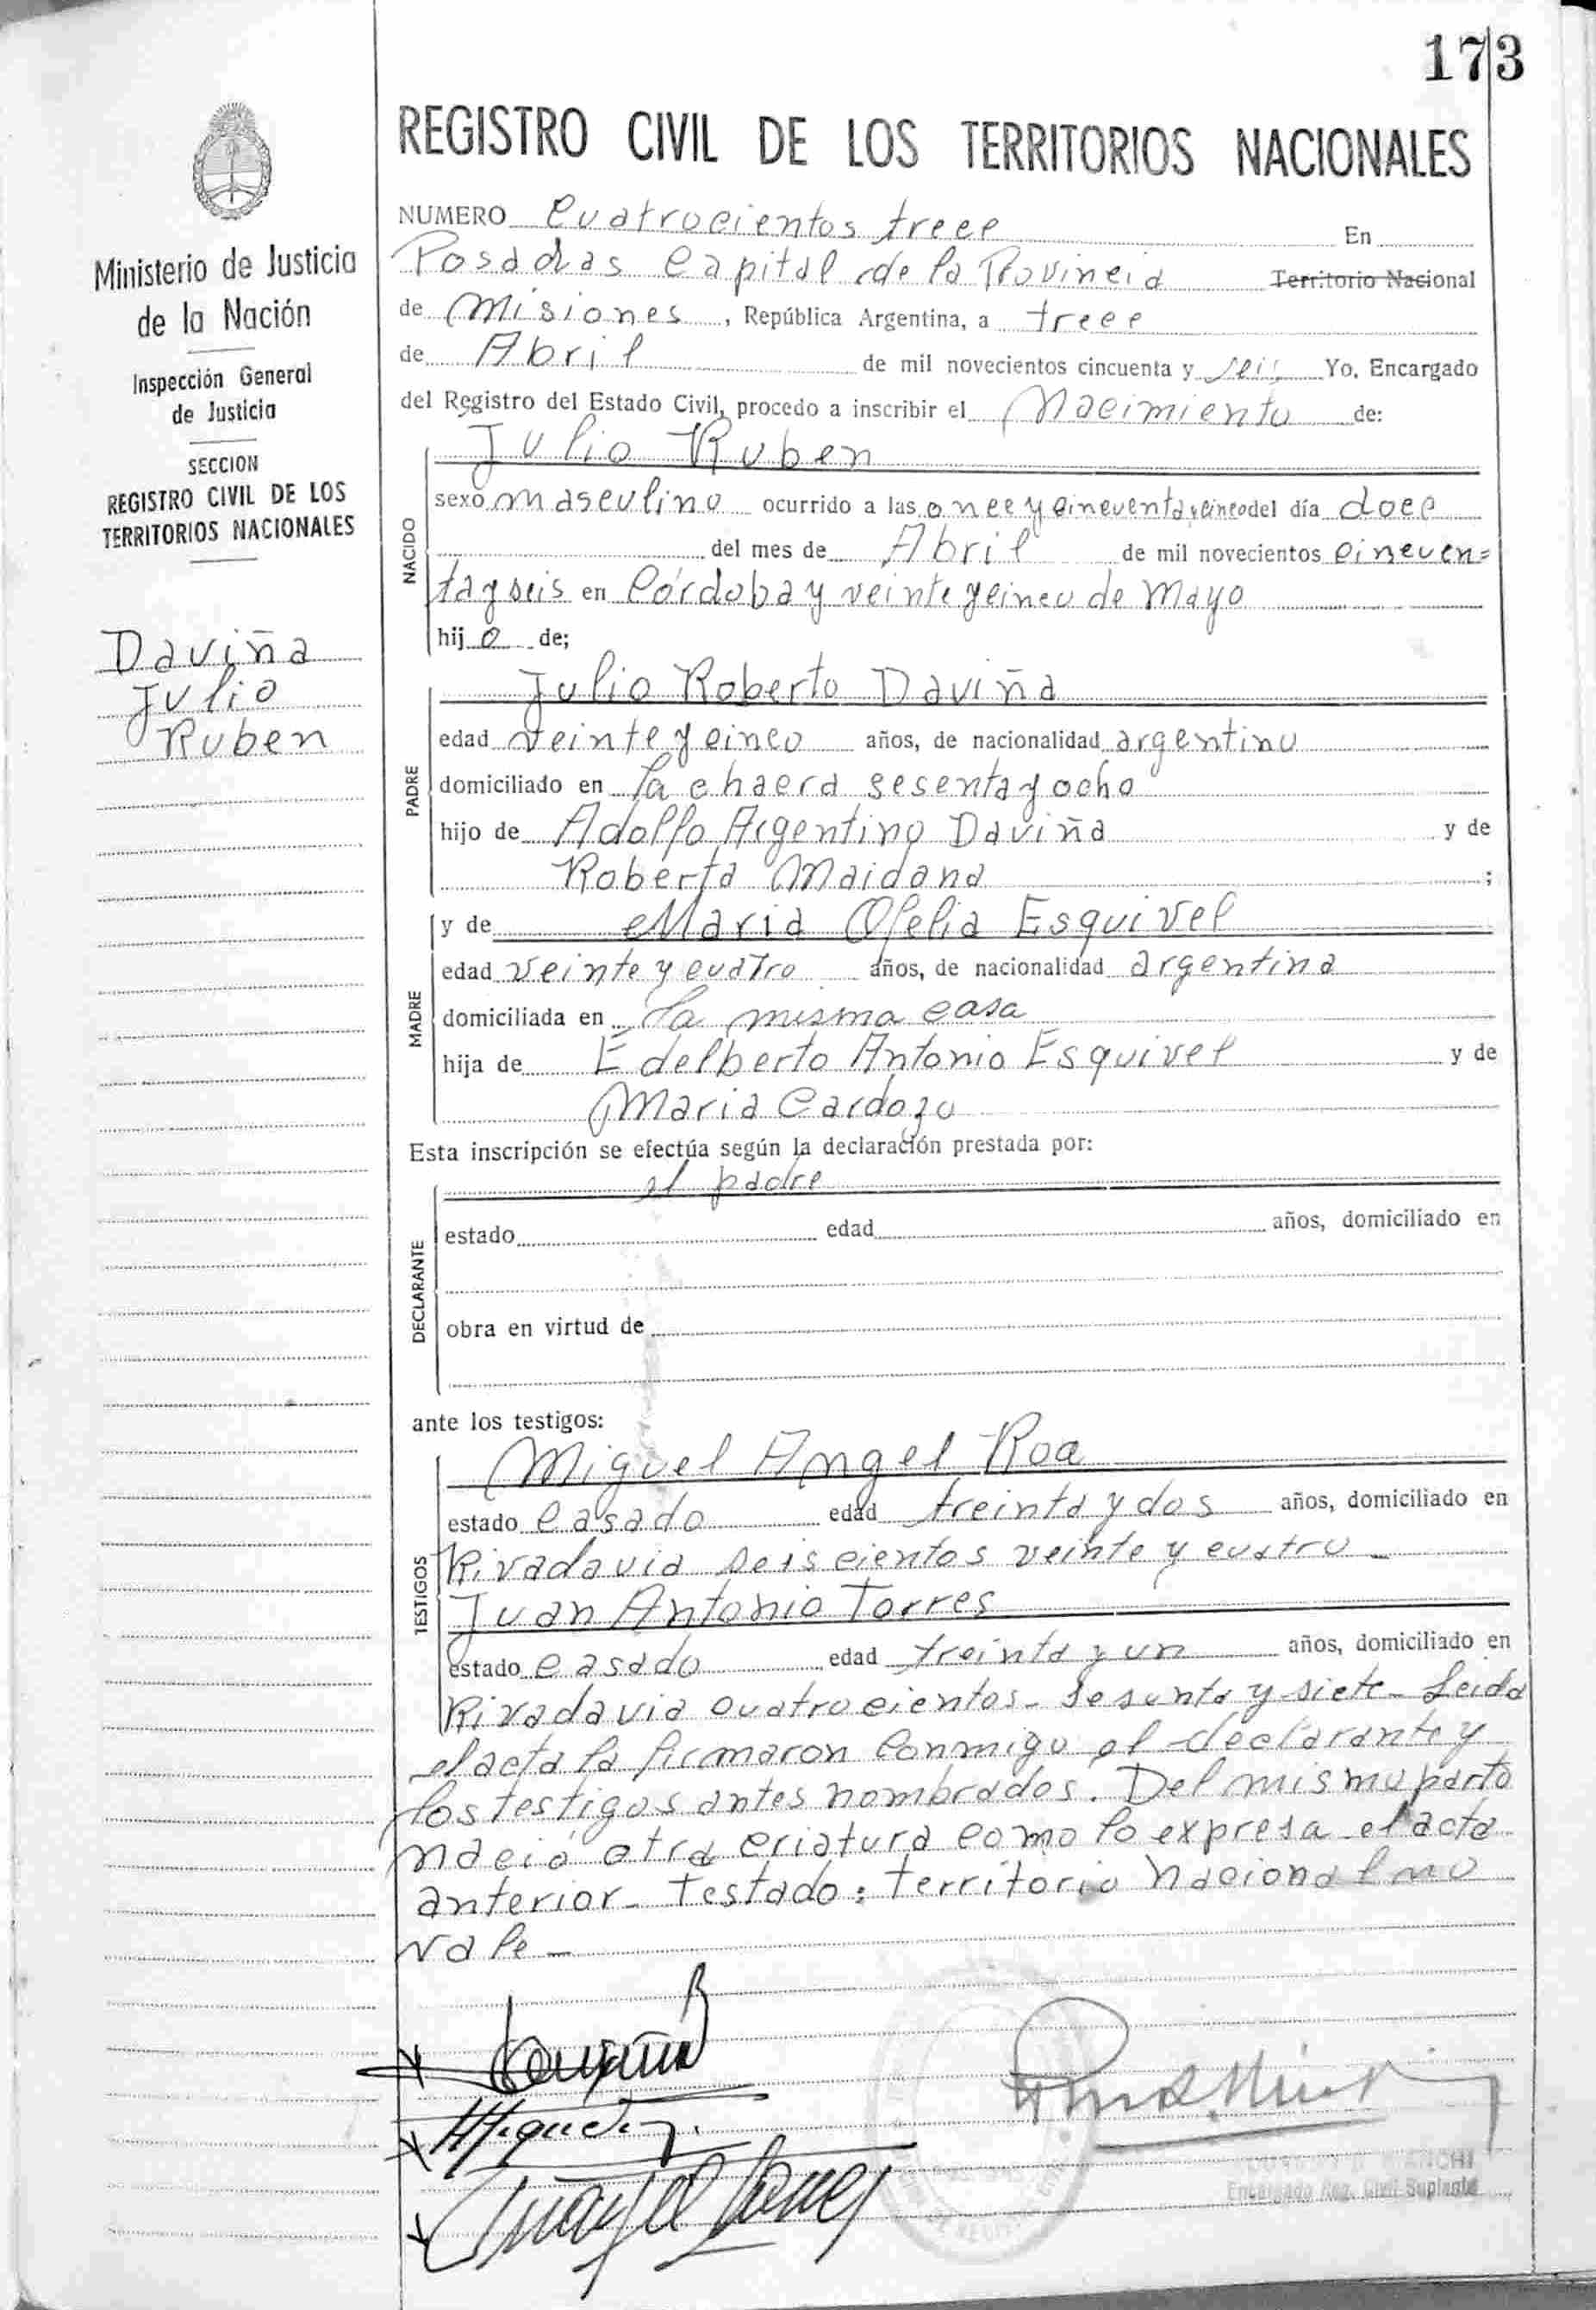 173
REGISTRO CIVIL DE LOS TERRITORIOS NACIONALES
Ministerio de Justicia
de la Nación
Inspección General
de Justicia
SECCION
REGISTRO CIVIL DE LOS
TERRITORIOS NACIONALES
Daviña
Julio
Ruben
NUMERO Cuatrocientos trece En
Posadas Capital de la Provincia Territorio Nacional
de Misiones, República Argentina, a trece
de Abril de mil novecientos cincuenta y seis Yo, Encargado
del Registro del Estado Civil, procedo a inscribir el Nacimiento de:
NACIDO
Julio Ruben
sexo masculino ocurrido a las once y cincuenta y cinco del día doce
del mes de Abril de mil novecientos cincuen=
ta y seis en Córdoba y veinte y cinco de Mayo
hijo de;
PADRE
Julio Roberto Daviña
edad veinte y cinco años, de nacionalidad argentino
domiciliado en la chacra sesenta y ocho
hijo de Adolfo Argentino Daviña y de
Roberta Maidana ;
MADRE
y de Maria Ofelia Esquivel
edad veinte y cuatro años, de nacionalidad argentina
domiciliada en la misma casa
hija de Edelberto Antonio Esquivel y de
Maria Cardozo
Esta inscripción se efectúa según la declaración prestada por:
DECLARANTE
el padre
estado edad años, domiciliado en
obra en virtud de
ante los testigos:
TESTIGOS
Miguel Angel Roa
estado casado edad treinta y dos años, domiciliado en
Rivadavia seiscientos veinte y cuatro -
Juan Antonio Torres
estado casado edad treinta y un años, domiciliado en
Rivadavia cuatrocientos- sesenta y siete- Leida
el acta la firmaron conmigo el declarante y
los testigos antes nombrados. Del mismo parto
nació otra criatura como lo expresa el acta
anterior- Testado: territorio nacional no
vale -
Encargado Reg. Civil Suplente